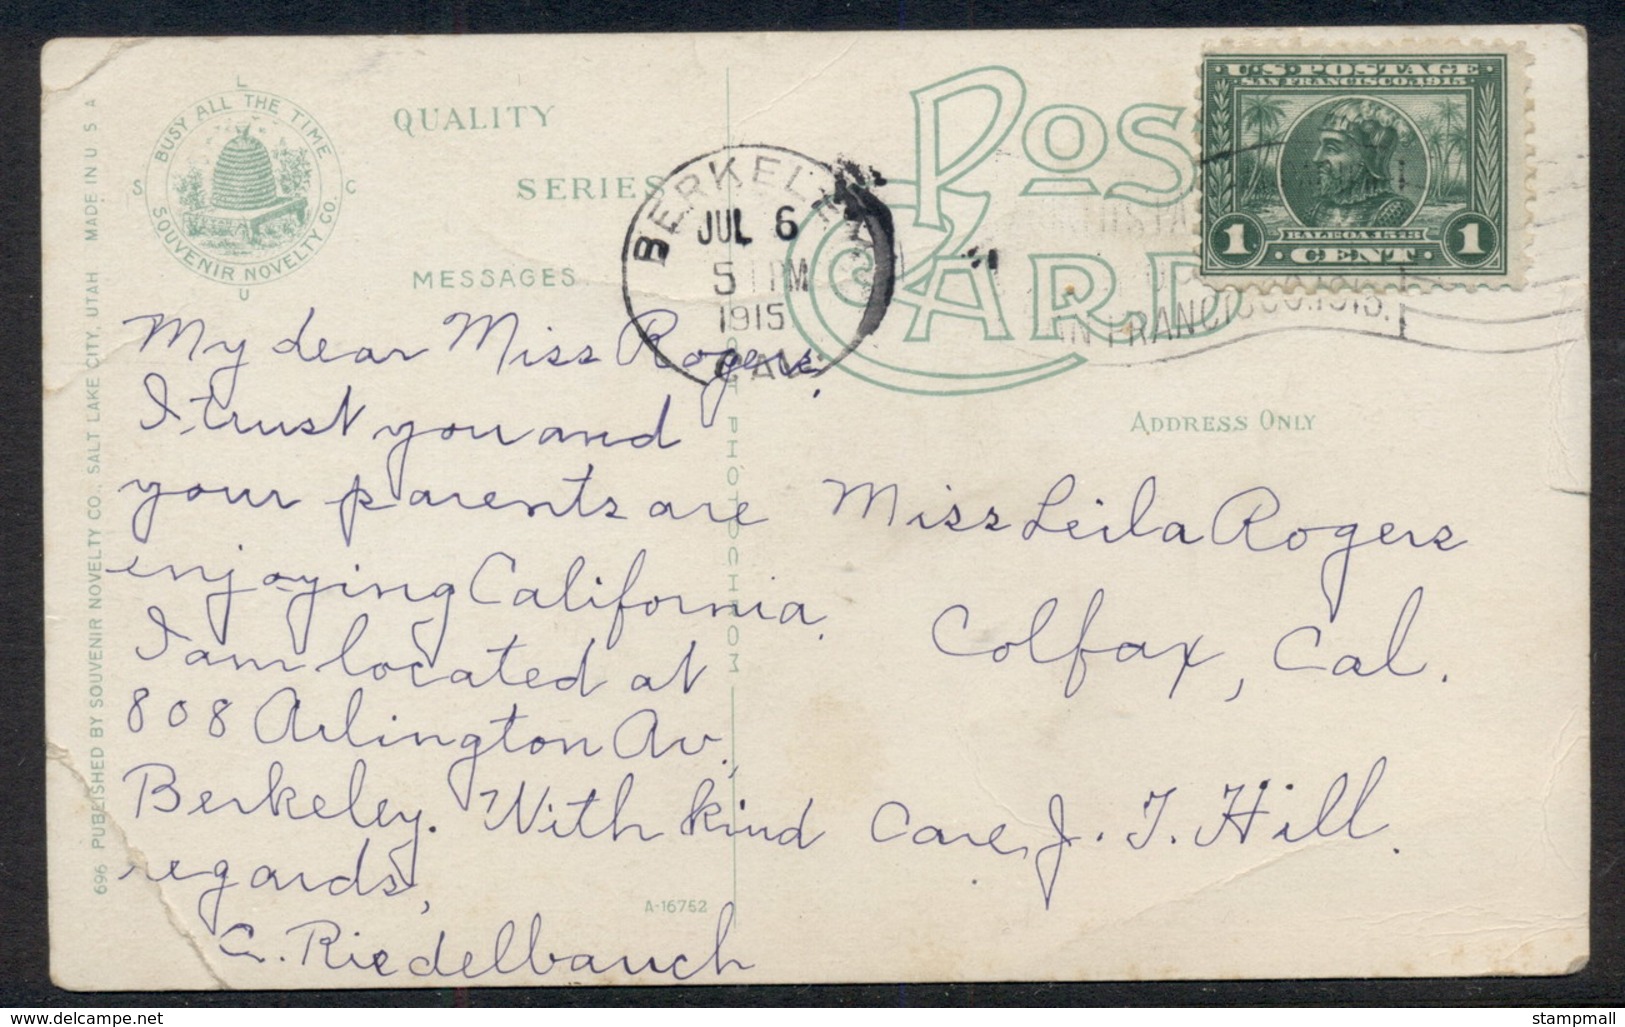 BUSY ALL THE TIME
SOUVENIR NOVELTY CO.
S L C U
QUALITY
SERIES
MESSAGES
696 PUBLISHED BY SOUVENIR NOVELTY CO., SALT LAKE CITY, UTAH MADE IN U S A
POST CARD
POST PHOTOCHROM
BERKELEY
JUL 6
5 PM
1915
CAL
U.S. POSTAGE
SAN FRANCISCO, 1915
BALBOA 1513
1 CENT 1
FRANCISCO, 1915.
ADDRESS ONLY
My dear Miss Rogers,
I trust you and
your parents are
enjoying California.
I am located at
808 Arlington Av.,
Berkeley. With kind
regards,
C. Riedelbauch
Miss Leila Rogers
Colfax, Cal.
Care J. T. Hill.
A-16752
www.delcampe.net
stampmall